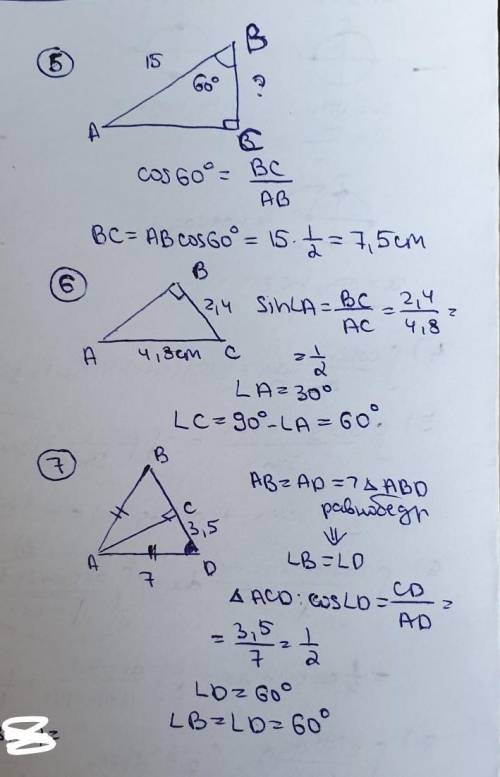 5
15
B
60°
?
A
C
cos60° = BC/AB
BC = ABcos60° = 15 · 1/2 = 7,5 cm
6
B
2,4
A
4,8cm
C
Sin∠A = BC/AC = 2,4/4,8 =
= 1/2
∠A = 30°
∠C = 90° - ∠A = 60°.
7
B
C
3,5
A
7
D
AB = AD => △ABD
равнобедр
⇓
∠B = ∠D
△ACD: cos∠D = CD/AD =
= 3,5/7 = 1/2
∠D = 60°
∠B = ∠D = 60°